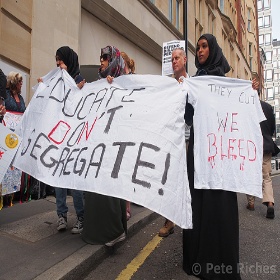 EDUCATE
DON'T
SEGREGATE!
THEY CUT
WE
BLEED
© Pete Riches